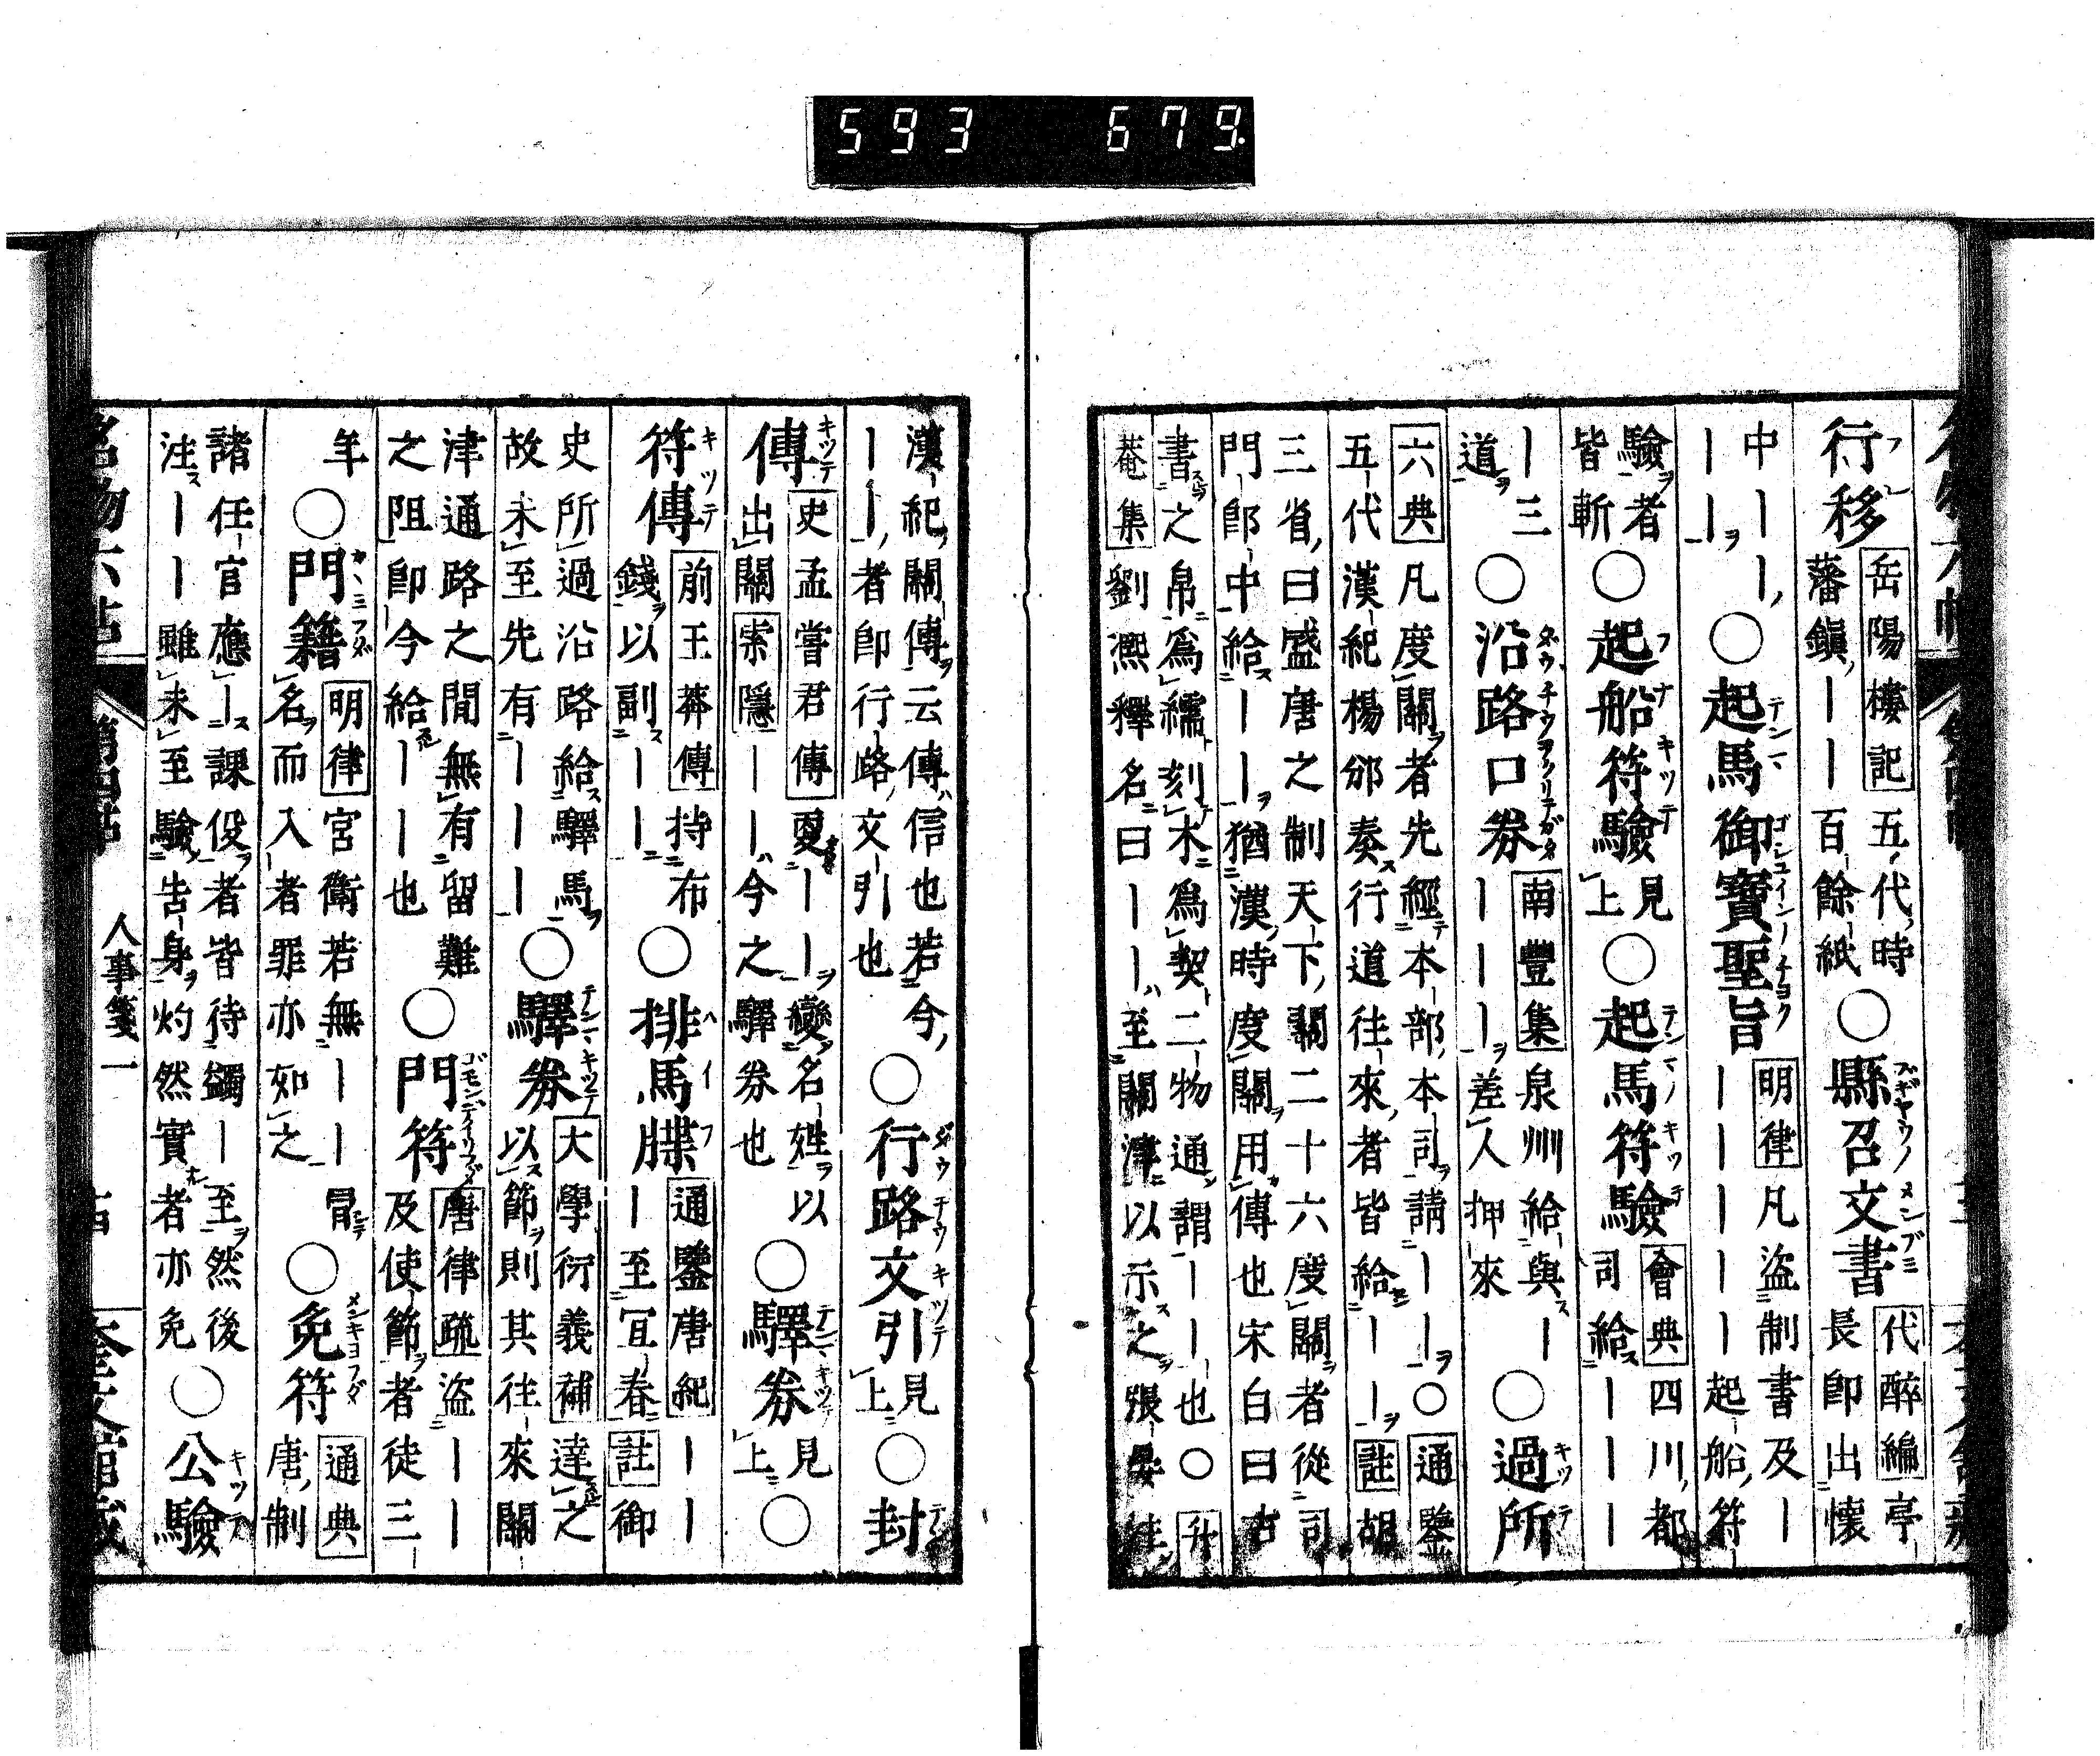 行移 岳陽樓記 五代時
藩鎭――百餘紙
○縣召文書 代醉編 亭
長即出懷
中―――
――
○起馬御寶聖旨 明律 凡盜制書及―
―――――起船符
驗者
皆斬
○起船符驗 見
上
○起馬符驗 會典 四川都
司給―――
―三
道
○沿路口券 南豐集 泉州給與―
―――差人押來
○過所
六典 凡度關者先經本部本司請――○通鑒
五代漢紀楊邠奏行道往來者皆給―― 註 胡
三省曰盛唐之制天下關二十六度關者從司
門郎中給――猶漢時度關用傳也宋白曰古
書之帛爲繻刻木爲契二物通謂――也○升
菴集 劉熈釋名曰――至關津以示之張晏註
漢紀關傳云傳信也若今
――者即行路文引也
○行路文引 見
上
○封
傳 史孟嘗君傳 更――變名姓以
出關 索隱 ――今之驛券也
○驛券 見
上
○
符傳 前王莽傳 持布
錢以副――
○排馬牒 通鑒唐紀 ――
―至宜春 註 御
史所過沿路給驛馬
故未至先有―――
○驛券 大學衍義補 達之
以節則其往來關
津通路之間無有留難
之阻即今給――也
○門符 唐律疏 盜――
及使節者徒三
年
○門籍 明律 宮衛若無――冒
名而入者罪亦如之
○免符 通典
唐制
諸任官應―課役者皆待蠲―至然後
注――雖未至驗告身灼然實者亦免
○公驗
名物六帖 第四帖 人事箋一 奎文館藏